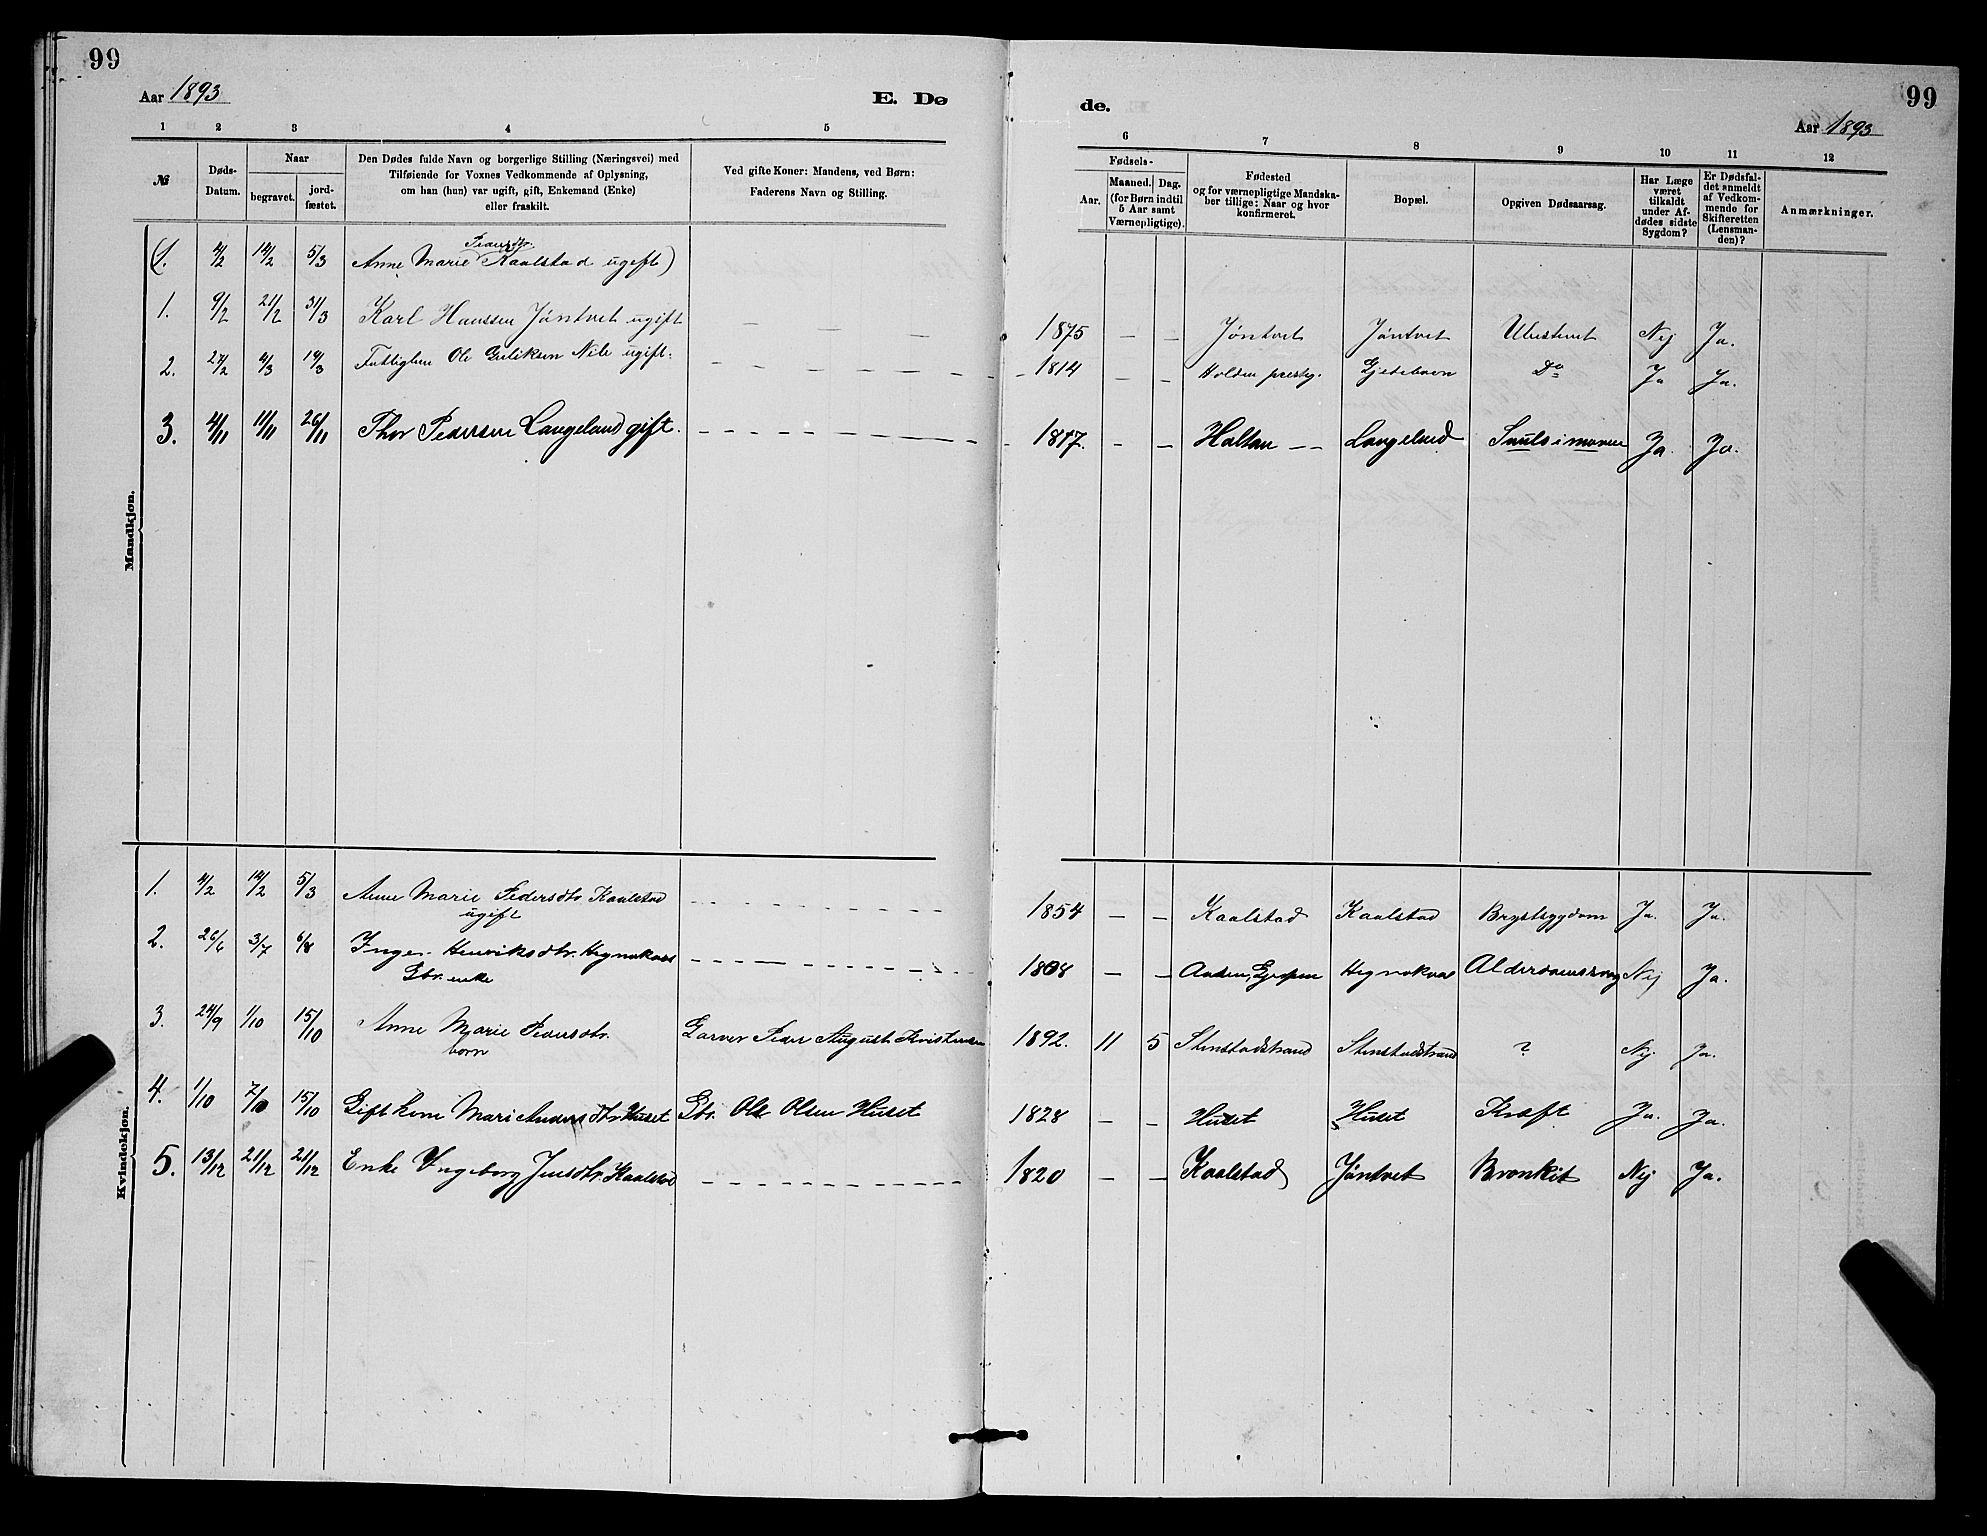 99
99
Aar 1893
E. Dø
de.
Aar 1893
1 2 3 4 5
6 7 8 9 10 11 12
№
Døds-
Datum.
Naar
begravet.
jord-
fæstet.
Den Dødes fulde Navn og borgerlige Stilling (Næringsvei) med
Tilføiende for Voxnes Vedkommende af Oplysning,
om han (hun) var ugift, gift, Enkemand (Enke)
eller fraskilt.
Ved gifte Koner: Mandens, ved Børn:
Faderens Navn og Stilling.
Fødsels-
Aar.
Maaned. Dag.
(for Børn indtil
5 Aar samt
Værnepligtige).
Fødested
og for værnepligtige Mandska-
ber tillige: Naar og hvor
konfirmeret.
Bopæl.
Opgiven Dødsaarsag.
Har Læge
været
tilkaldt
under Af-
dødes sidste
Sygdom?
Er Dødsfal-
det anmeldt
af Vedkom-
mende for
Skifteretten
(Lensman-
den)?
Anmærkninger.
Mandkjøn.
Pedersdtr.
(1. 4/2 14/2 5/3 Anne Marie Kaalstad ugift)
1. 9/2 21/2 31/3 Karl Hanssen Jøntvet ugift — — — 1875 — — Jøntvet Jøntvet Nej Ja.
2. 27/2 Ole Nile ugift. 1814 — — Holden prestg. Do Ja Ja.
3. 4/11 11/11 26/11 Thor Pedersen Langeland gift. 1817. — — Holtan — — Langeland Ja. Ja.
Kvindekjøn.
1. 4/2 14/2 5/3 Anne Marie Pedersdtr Kaalstad 1854 — — Kaalstad Kaalstad Brystsygdom Ja. Ja.
ugift
2. 26/6 3/7 6/8 Inger Henriksdtr. 1808 — — Nej Ja.
Gbr. enke
3. 24/9 1/10 15/10 Anne Marie Pedersdtr. Garver Peder August Kristensen 1892. 11 5 Stenstadstrand Stenstadstrand ? Nej Ja.
barn
4. 1/10 7/10 15/10 Gift kone Mari Andersdtr. Huset Gbr. Ole Olsen Huset 1828 — — Huset Huset Kræft Ja. Ja.
5. 13/12 21/12 21/12 Enke Ingeborg Jensdtr. Kaalstad 1820 — — Kaalstad Jøntvet Bronkit Nej Ja.